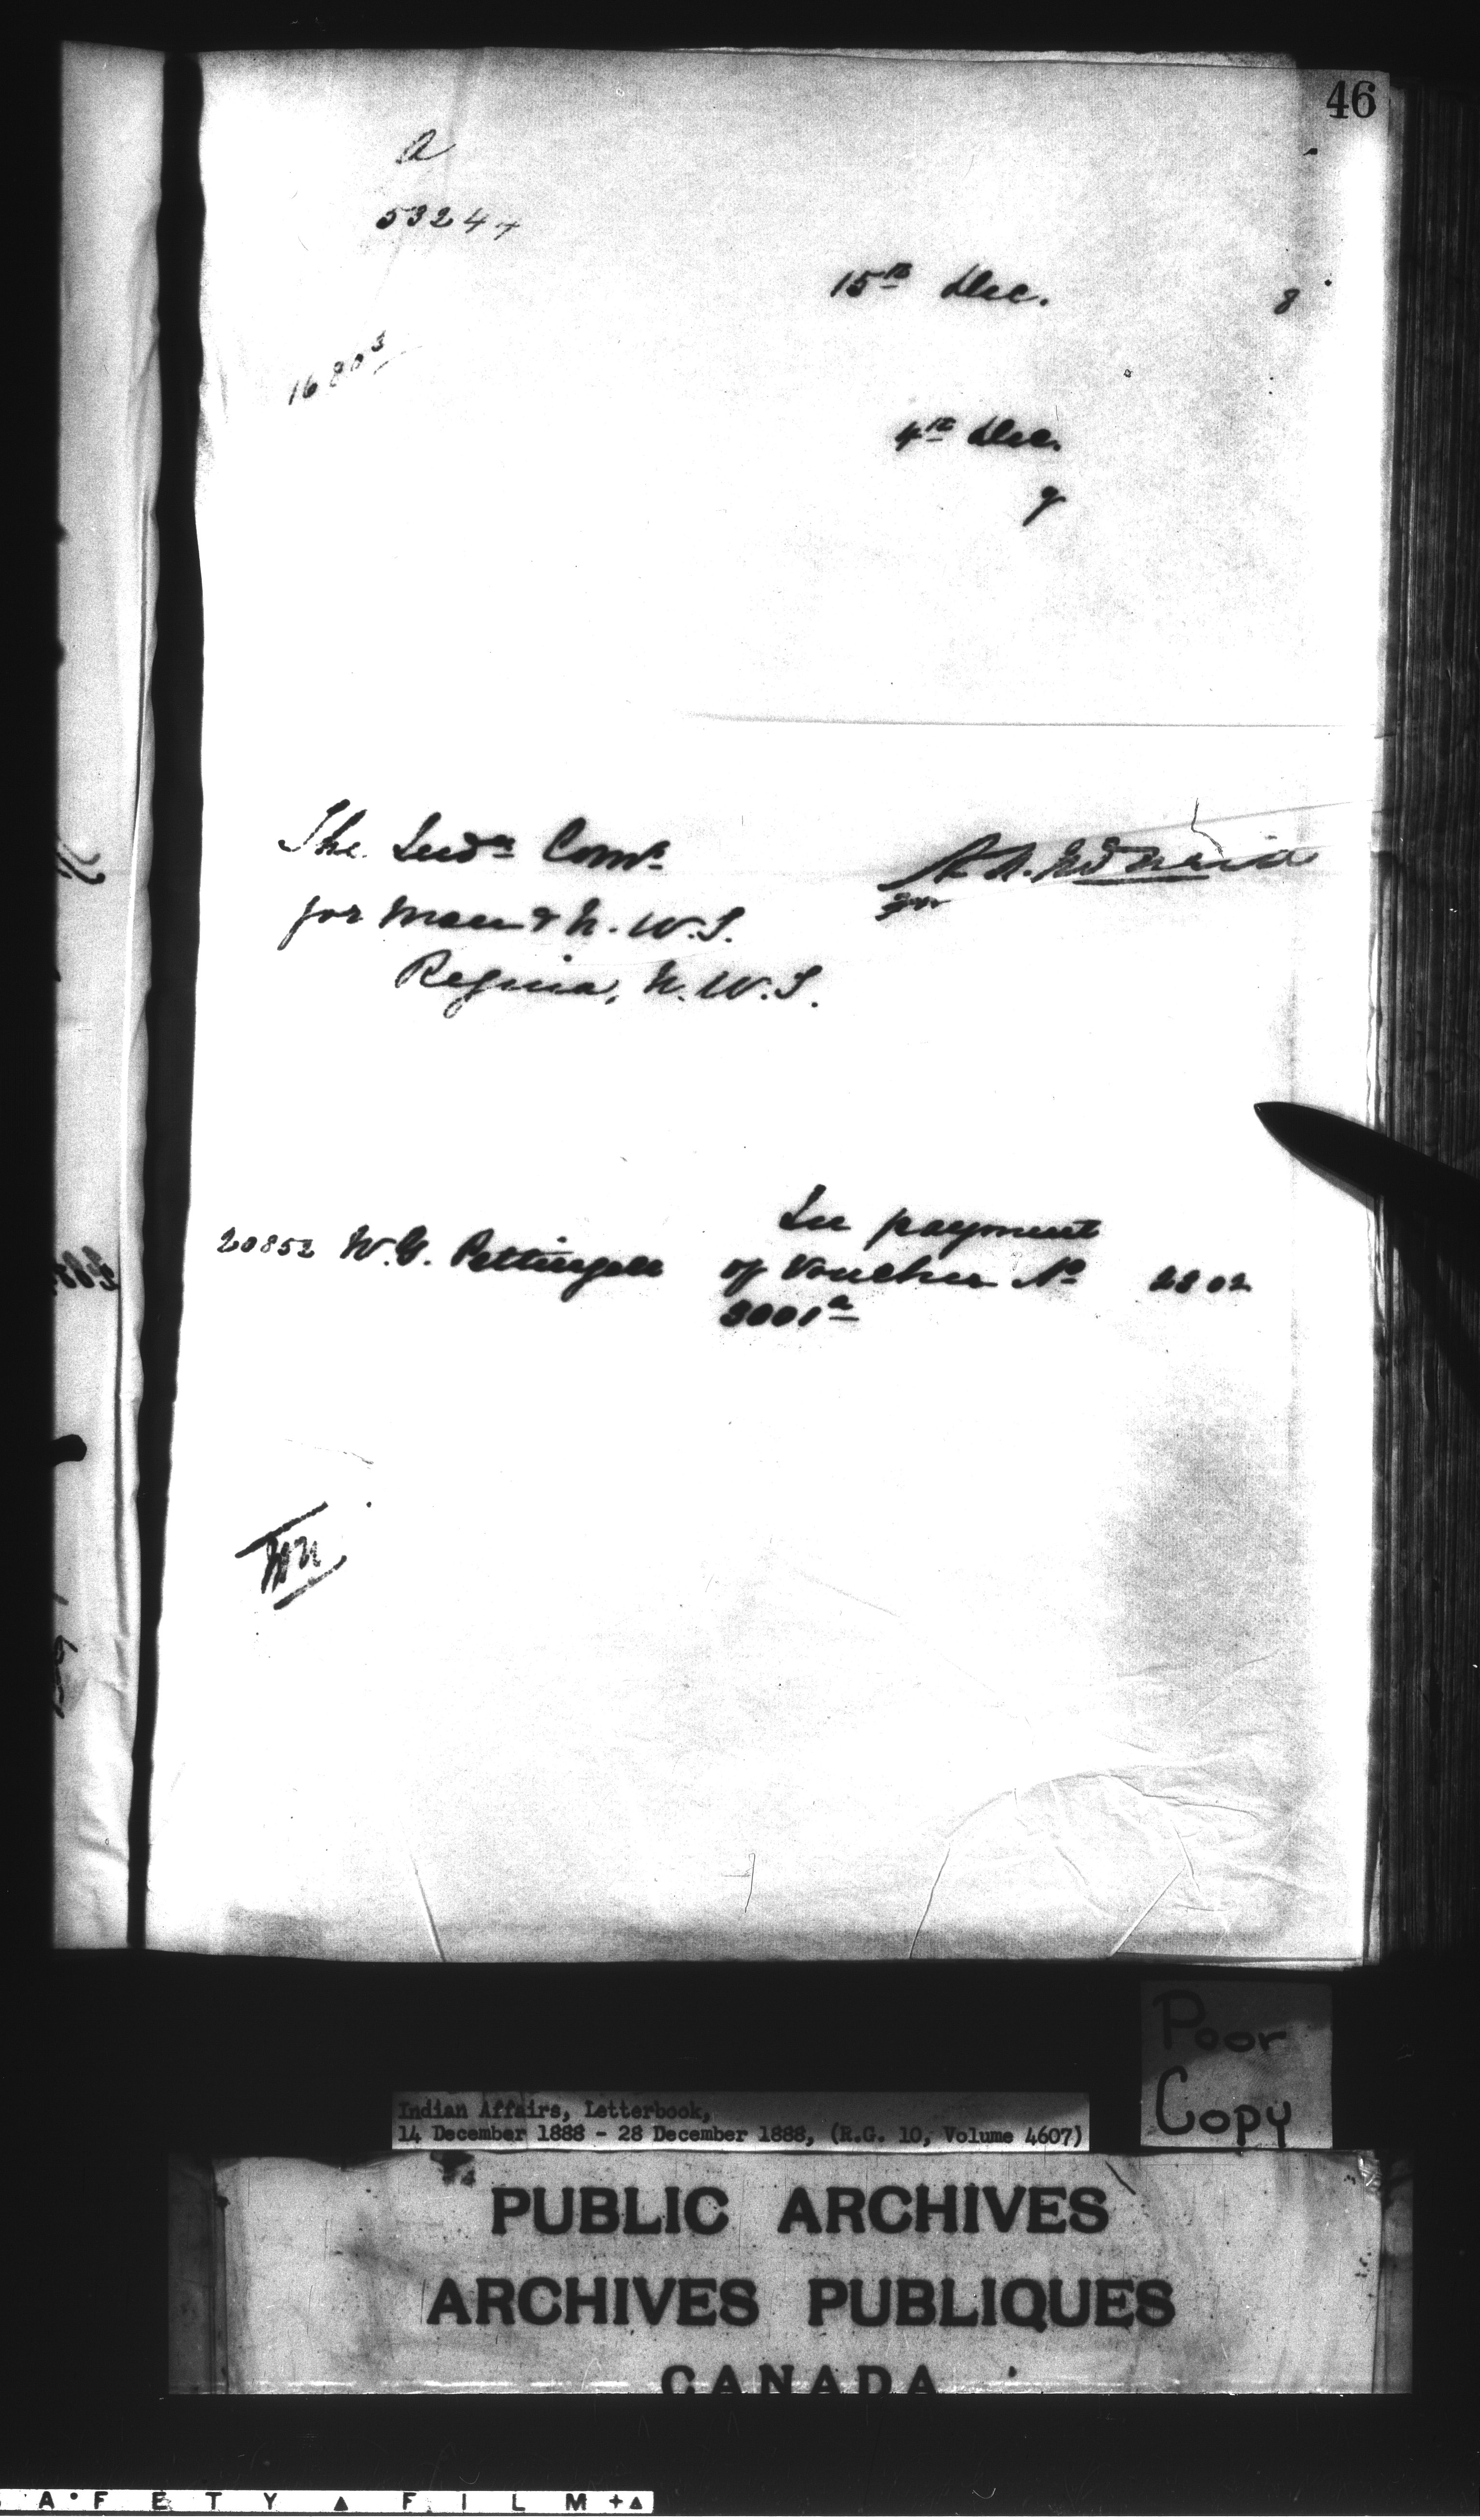 46
a
53244
15th Dec. 8
16803
4th Dec.
y
The Indn Comr
for Man & N.W.T.
Regina, N.W.T.
for
20852 W.G. Pettingell In payment
of Voucher No 2802
3001a
Poor
Copy
Indian Affairs, Letterbook,
14 December 1888 - 28 December 1888, (R.G. 10, Volume 4607)
PUBLIC ARCHIVES
ARCHIVES PUBLIQUES
CANADA
SAFETY FILM